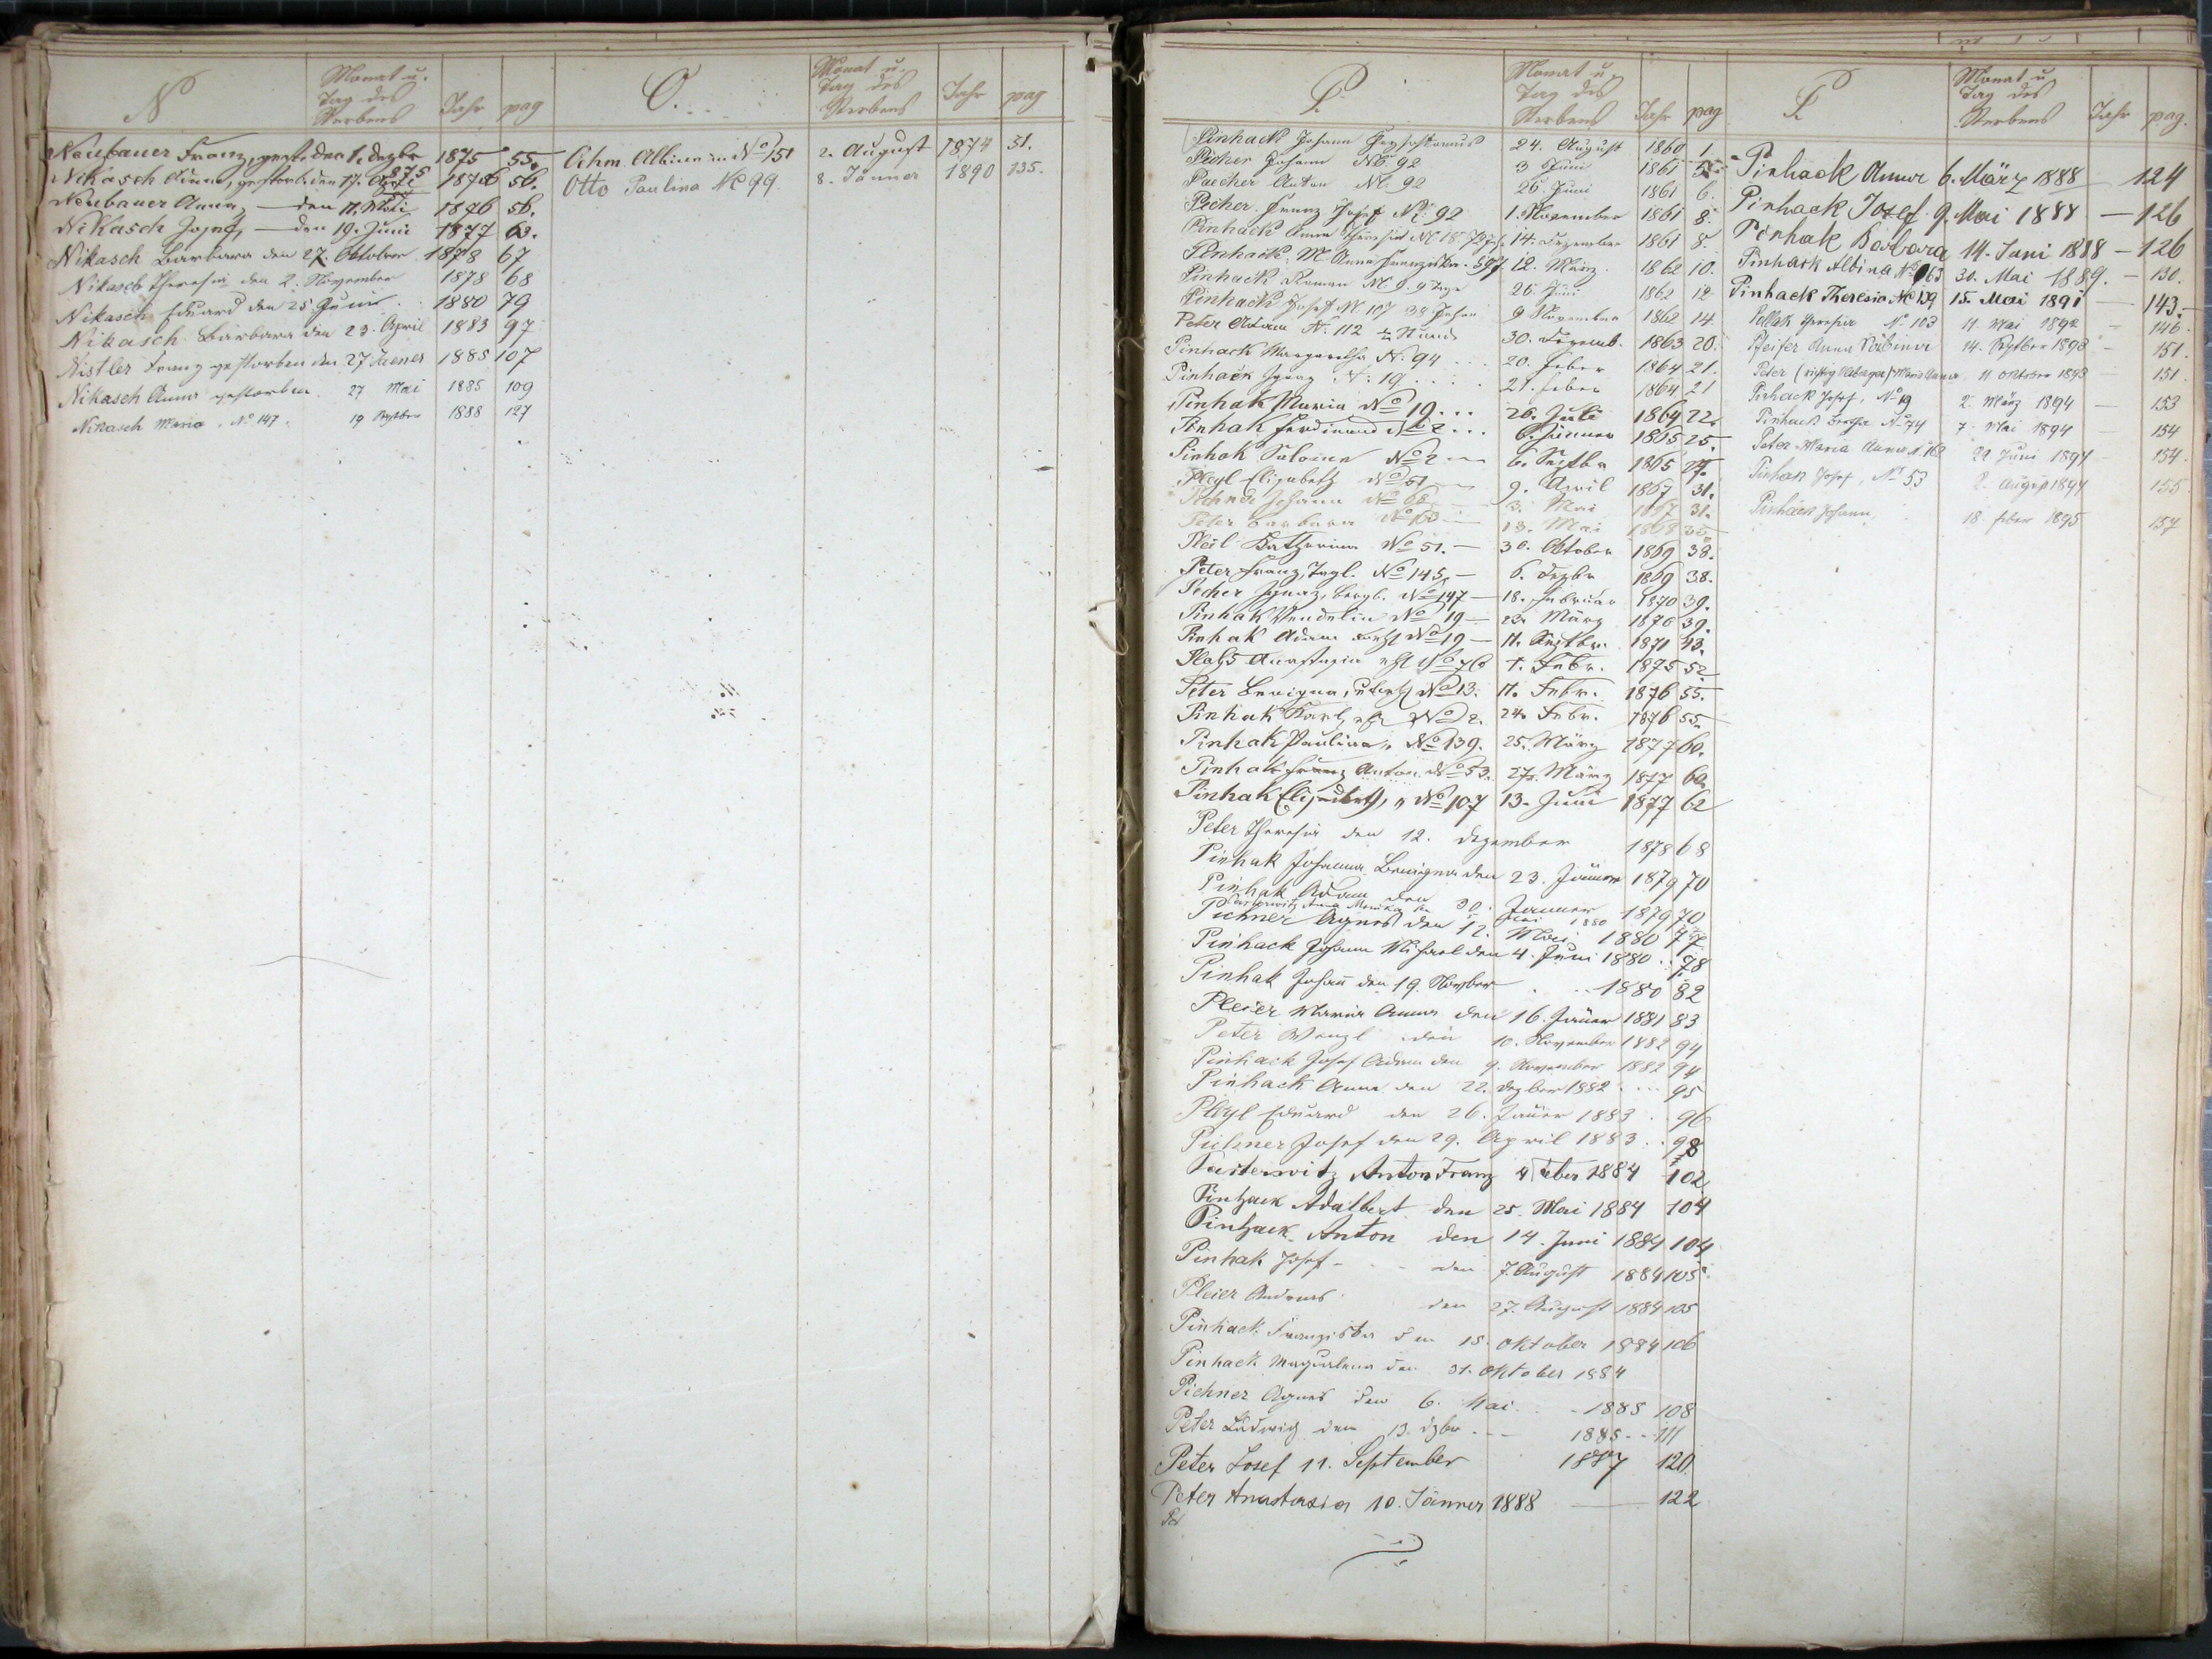 N
Monat u.
Tag des
Sterbens
Jahr pag
Neubauer Franz, gest. den 1. Dezbr 1875 55.
Nikasch Anna, gestorb. den 17. 1876 56.
Neubauer Anna, — den 11. Mai 1876 56.
Nikasch Josef, — den 19. Juni 1877 63.
Nikasch Barbara den 27. Oktober 1878 67
Nikasch Theresia den 2. November 1878 68
Nikasch Eduard den 25. Juni 1880 79
Nikasch Barbara den 23. April 1883 97
Nistler Franz gestorben den 27 Jaener 1885 107
Nikasch Anna gestorben 27 Mai 1885 109
Nikasch Maria, No 147. 19 Septbr 1888 127
O.
Monat u.
Tag des
Sterbens
Jahr pag
Oehm Albina in No 151 2. August 1874 51.
Otto Paulina No 99 8. Jänner 1890 135.
P.
Monat u.
Tag des
Sterbens
Jahr pag
Pinhack Johann 24. August 1860 1.
Pecher Johann No. 92 3 Juni 1861 5.
Paecher Anton No. 92 26. Juni 1861 6.
Pecher Franz Josef No. 92 1. November 1861 8.
Pinhack Anna Theresia No 18 14. Dezember 1861 8.
Pinhack, M. Anna Franziska 12. März 1862 10.
Pinhack Roman No 9. 9 Tage 26. Juni 1862 12
Pinhack Josef No. 107 38 Jahre 9 November 1862 14
Peter Adam N. 112 30. Dezemb. 1863 20.
Pinhack Margaretha N. 94 20. Feber 1864 21.
Pinhack Ignaz N. 19 21. Feber 1864 21
Pinhak Maria No 19 26. Juli 1864 22.
Pinhak Ferdinand No 2 6. Jänner 1865 25.
Pinhak Salome No 2 6. Septbr 1865 27.
Pleyl Elisabeth No 51 9. April 1867 31.
Johann No 68 3. Mai 1867 31.
Peter Barbara No 153 13. Mai 1868
Pleil Katharina No 51. — 30. Oktober 1869 38.
Peter Franz, Tagl. No 145, — 6. Dezbr 1869 38.
Pecher Ignaz, Bergb. No 147 — 18. Februar 1870 39.
Pinhak Wendelin No 19 — 22. März 1870 39.
Pinhak Adam No 19 — 11. Septbr. 1871 43.
Anastasia No 76 1. Febr. 1875 52
Peter Benigna, No 13. 11. Febr. 1876 55.
Pinhak Karl, No 2. 24. Febr. 1876 55.
Pinhak Paulina, No 139. 25. März 1877 60.
Pinhak Franz Anton No 53. 27. März 1877 60.
Pinhak Elisabeth, " No 107 13. Juni 1877 62
Peter Theresia den 12. Dezember 1878 68
Pinhak Johanna Benigna den 23. Jänner 1879 70
Pinhak Adam den 30. Januar 1879 70
Pasterwitz Anna Monika 1880
Pichner Agnes den 12. Mai 1880 77
Pinhack Johann Michael den 4. Juni 1880 78
Pinhak Johann den 19. Novber 1880 82
Pleier Maria Anna den 16. Jäner 1881 83
Peter Wenzl den 10. November 1882 94
Pinhack Josef Adam den 9. November 1882 94
Pinhack Anna den 22. Dezber 1882 95
Pleyl Eduard den 26. Jäner 1883 96
Pichner Josef den 29. April 1883 98
Pasterwitz Anton Franz 4 Feber 1884 102
Pinhack Adalbert den 25. Mai 1884 104
Pinhack Anton den 14. Juni 1884 104
Pinhak Josef - den 7. August 1884 105
Pleier Andreas den 27. August 1884 105
Pinhack Franziska den 15. Oktober 1884 106
Pinhack Magdalena den 31. Oktober 1884
Pichner Agnes den 6. Mai 1885 108
Peter Ludwig den 13. Dzbr 1885 111
Peter Josef 11. September 1887 120.
Peter Anastasia 10. Jänner 1888 — 122
Pet
P
Monat u
Tag des
Sterbens
Jahr pag.
Pinhack Anna 6. März 1888 124
Pinhack Josef 9. Mai 1888 — 126
Pinhak Barbara 14. Juni 1888 — 126
Pinhack Albina 30. Mai 1889. — 130.
Pinhack Theresia No 159 15. Mai 1891 — 143.
Pellak Theresia No 103 11. Mai 1892 — 146.
Pfeifer Anna Sabina 14. Septber 1893 — 151.
Peter Maria Anna 11 Oktober 1893 — 151.
Pinhack Josef, No 19 2. März 1894 — 153
Pinhack No 74 7. Mai 1894 — 154
Peter Maria Anna N. 162 22 Juni 1894 — 154.
Pinhak Josef, No 53 2. August 1894 155
Pinhack Johann, 18. Feber 1895 157